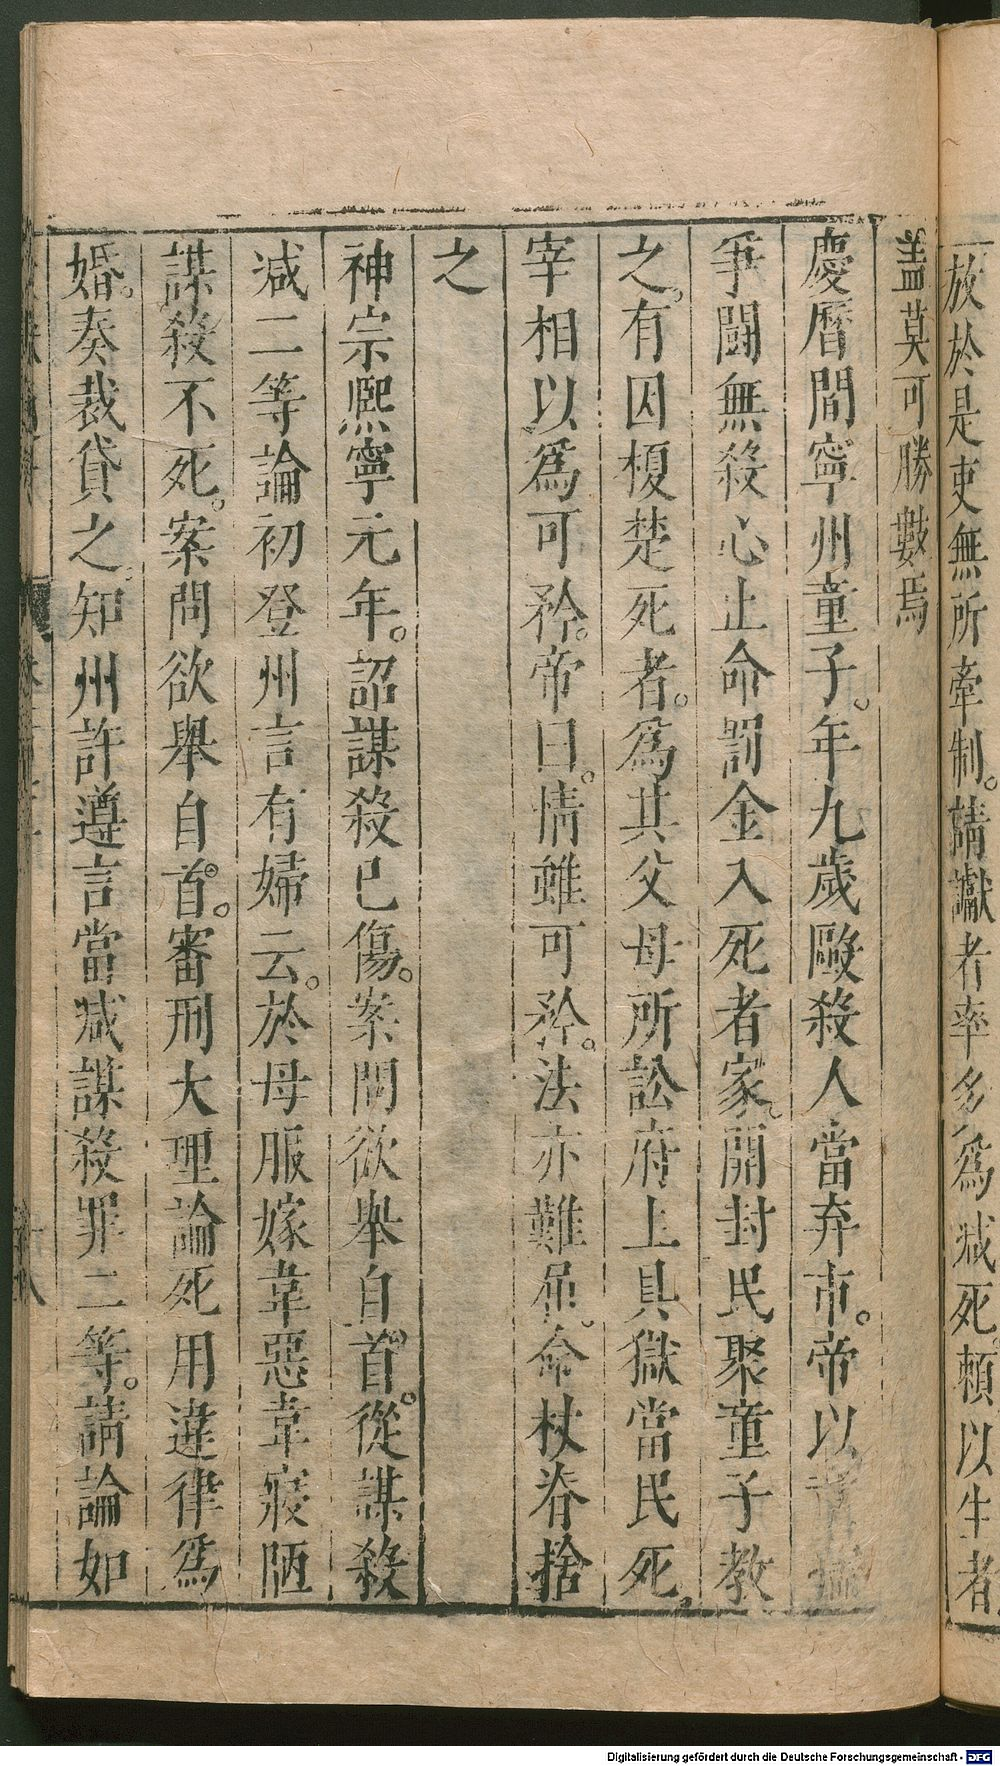 放於是吏無所牽制。請讞者率多爲减死頼以生者
盖莫可勝數焉
慶曆間寧州童子。年九歲毆殺人當弃市。帝以
爭鬬無殺心止命罰金入死者家。開封民聚童子教
之。有因榎楚死者。爲其父母所訟府上具獄當民死。
宰相以爲可矜。帝曰。情雖可矜。法亦難屈。命杖脊捨
之
神宗熙寧元年。詔謀殺已傷。案問欲舉自首。從謀殺
减二等論初登州言有婦云。於母服嫁韋惡韋寢陋
謀殺不死。案問欲舉自首。審刑大理論死用違律爲
婚。奏裁貸之。知州許遵言當减謀殺罪二等。請論如
Digitalisierung gefördert durch die Deutsche Forschungsgemeinschaft - DFG